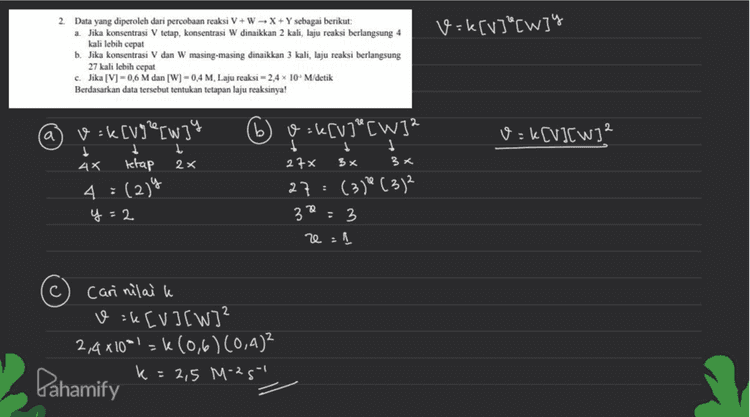 2. Data yang diperoleh dari percobaan reaksi V + W → X + Y sebagai berikut:
a. Jika konsentrasi V tetap, konsentrasi W dinaikkan 2 kali, laju reaksi berlangsung 4
kali lebih cepat
b. Jika konsentrasi V dan W masing-masing dinaikkan 3 kali, laju reaksi berlangsung
27 kali lebih cepat
c. Jika [V] = 0,6 M dan [W] = 0,4 M, Laju reaksi = 2,4 × 10⁻¹ M/detik
Berdasarkan data tersebut tentukan tetapan laju reaksinya!
v = k[V]ˣ[W]ʸ
a v = k[V]ˣ[W]ʸ
↓ ↓ ↓
4x tetap 2x
4 = (2)ʸ
y = 2
b v = k[V]ˣ[W]²
↓ ↓ ↓
27x 3x 3x
27 = (3)ˣ (3)²
3ˣ = 3
x = 1
v = k[V][W]²
c Cari nilai k
v = k[V][W]²
2,4 x 10⁻¹ = k (0,6) (0,4)²
k = 2,5 M⁻² s⁻¹
Pahamify